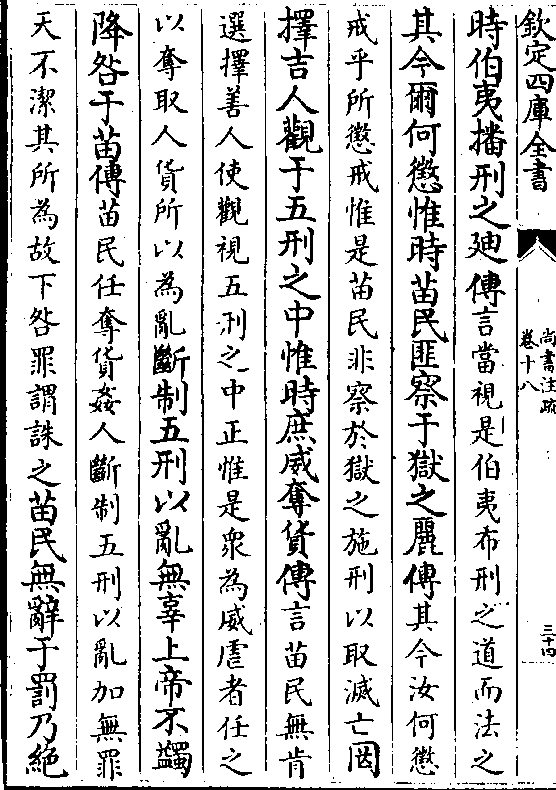 欽定四庫全書
尚書注疏
卷十八
三十四
時伯夷播刑之廸傳言當視是伯夷布刑之道而法之
其今爾何懲惟時苗民匪察于獄之麗傳其今汝何懲
戒乎所懲戒惟是苗民非察於獄之施刑以取滅亡罔
擇吉人觀于五刑之中惟時庶威奪貨傳言苗民無肯
選擇善人使觀視五刑之中正惟是衆為威虐者任之
以奪取人貨所以為亂斷制五刑以亂無辜上帝不蠲
降咎于苗傳苗民任奪貨姦人斷制五刑以亂加無罪
天不潔其所為故下咎罪謂誅之苗民無辭于罰乃絶